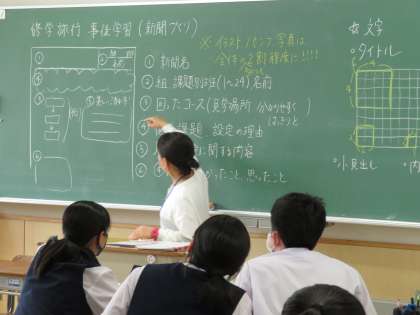 修学旅行 事後学習(新聞づくり)
※イラスト・パンフ・写真は
全体の2割程度に!!!!
① 新聞名
② 組 課題別班(1〜24)名前
③ 回ったコース(見学場所 分かりやすく)
はっきりと
④ 課題 設定の理由
⑤ に関する内容
⑥ かったこと、思ったこと
☆ 文字
○タイトル
○小見出し
○内
①
②
③
④
⑤
⑥